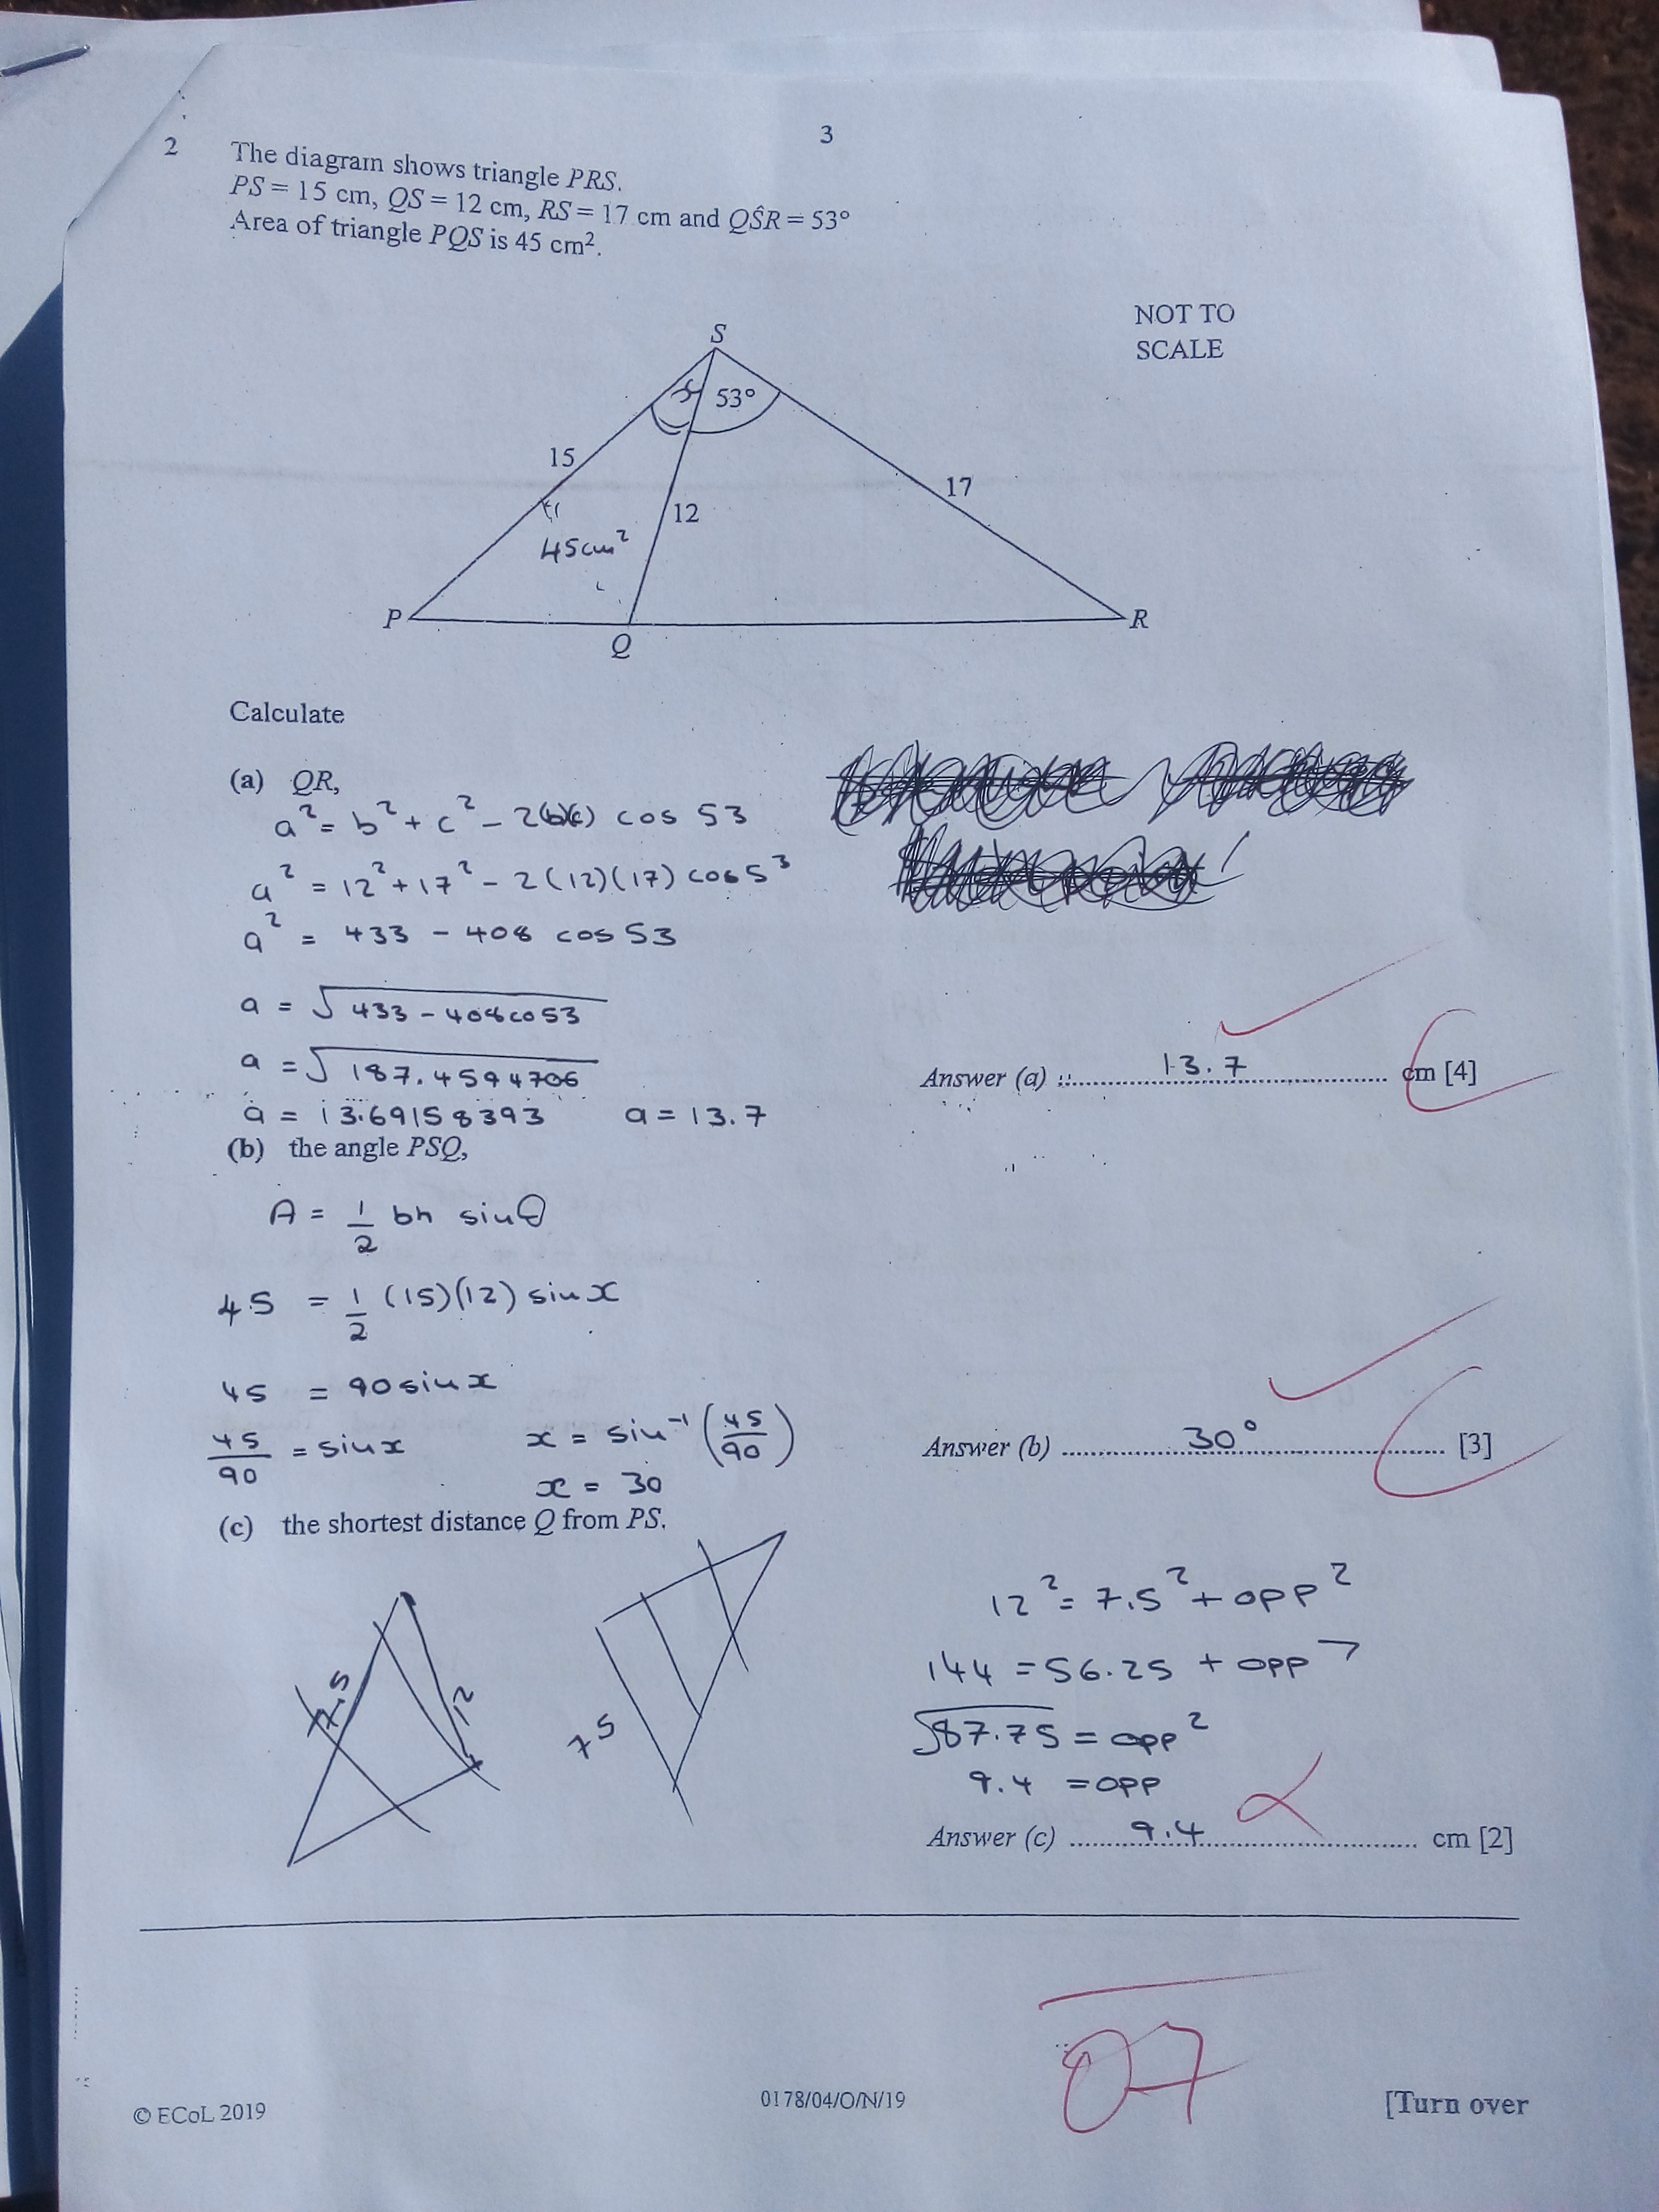 3
2 The diagram shows triangle PRS.
PS = 15 cm, QS = 12 cm, RS = 17 cm and QŜR = 53°
Area of triangle PQS is 45 cm².
NOT TO
SCALE
S
x 53°
15
17
12
45cm²
P
R
Q
Calculate
(a) QR,
a² = b² + c² - 2(b)(c) cos 53
a² = 12² + 17² - 2(12)(17) cos 53
a² = 433 - 408 cos 53
a = √433 - 408co53
a = √187.4594706
Answer (a) 13.7 cm [4]
a = 13.69158393 a = 13.7
(b) the angle PSQ,
A = 1/2 bh sinθ
45 = 1/2 (15)(12) sin x
45 = 90 sin x
45/90 = sin x x = sin⁻¹(45/90)
Answer (b) 30° [3]
x = 30
(c) the shortest distance Q from PS.
12² = 7.5² + opp²
144 = 56.25 + opp²
7.5 12
75
√87.75 = opp²
9.4 = opp
Answer (c) 9.4 cm [2]
07
© ECoL 2019 0178/04/O/N/19 [Turn over